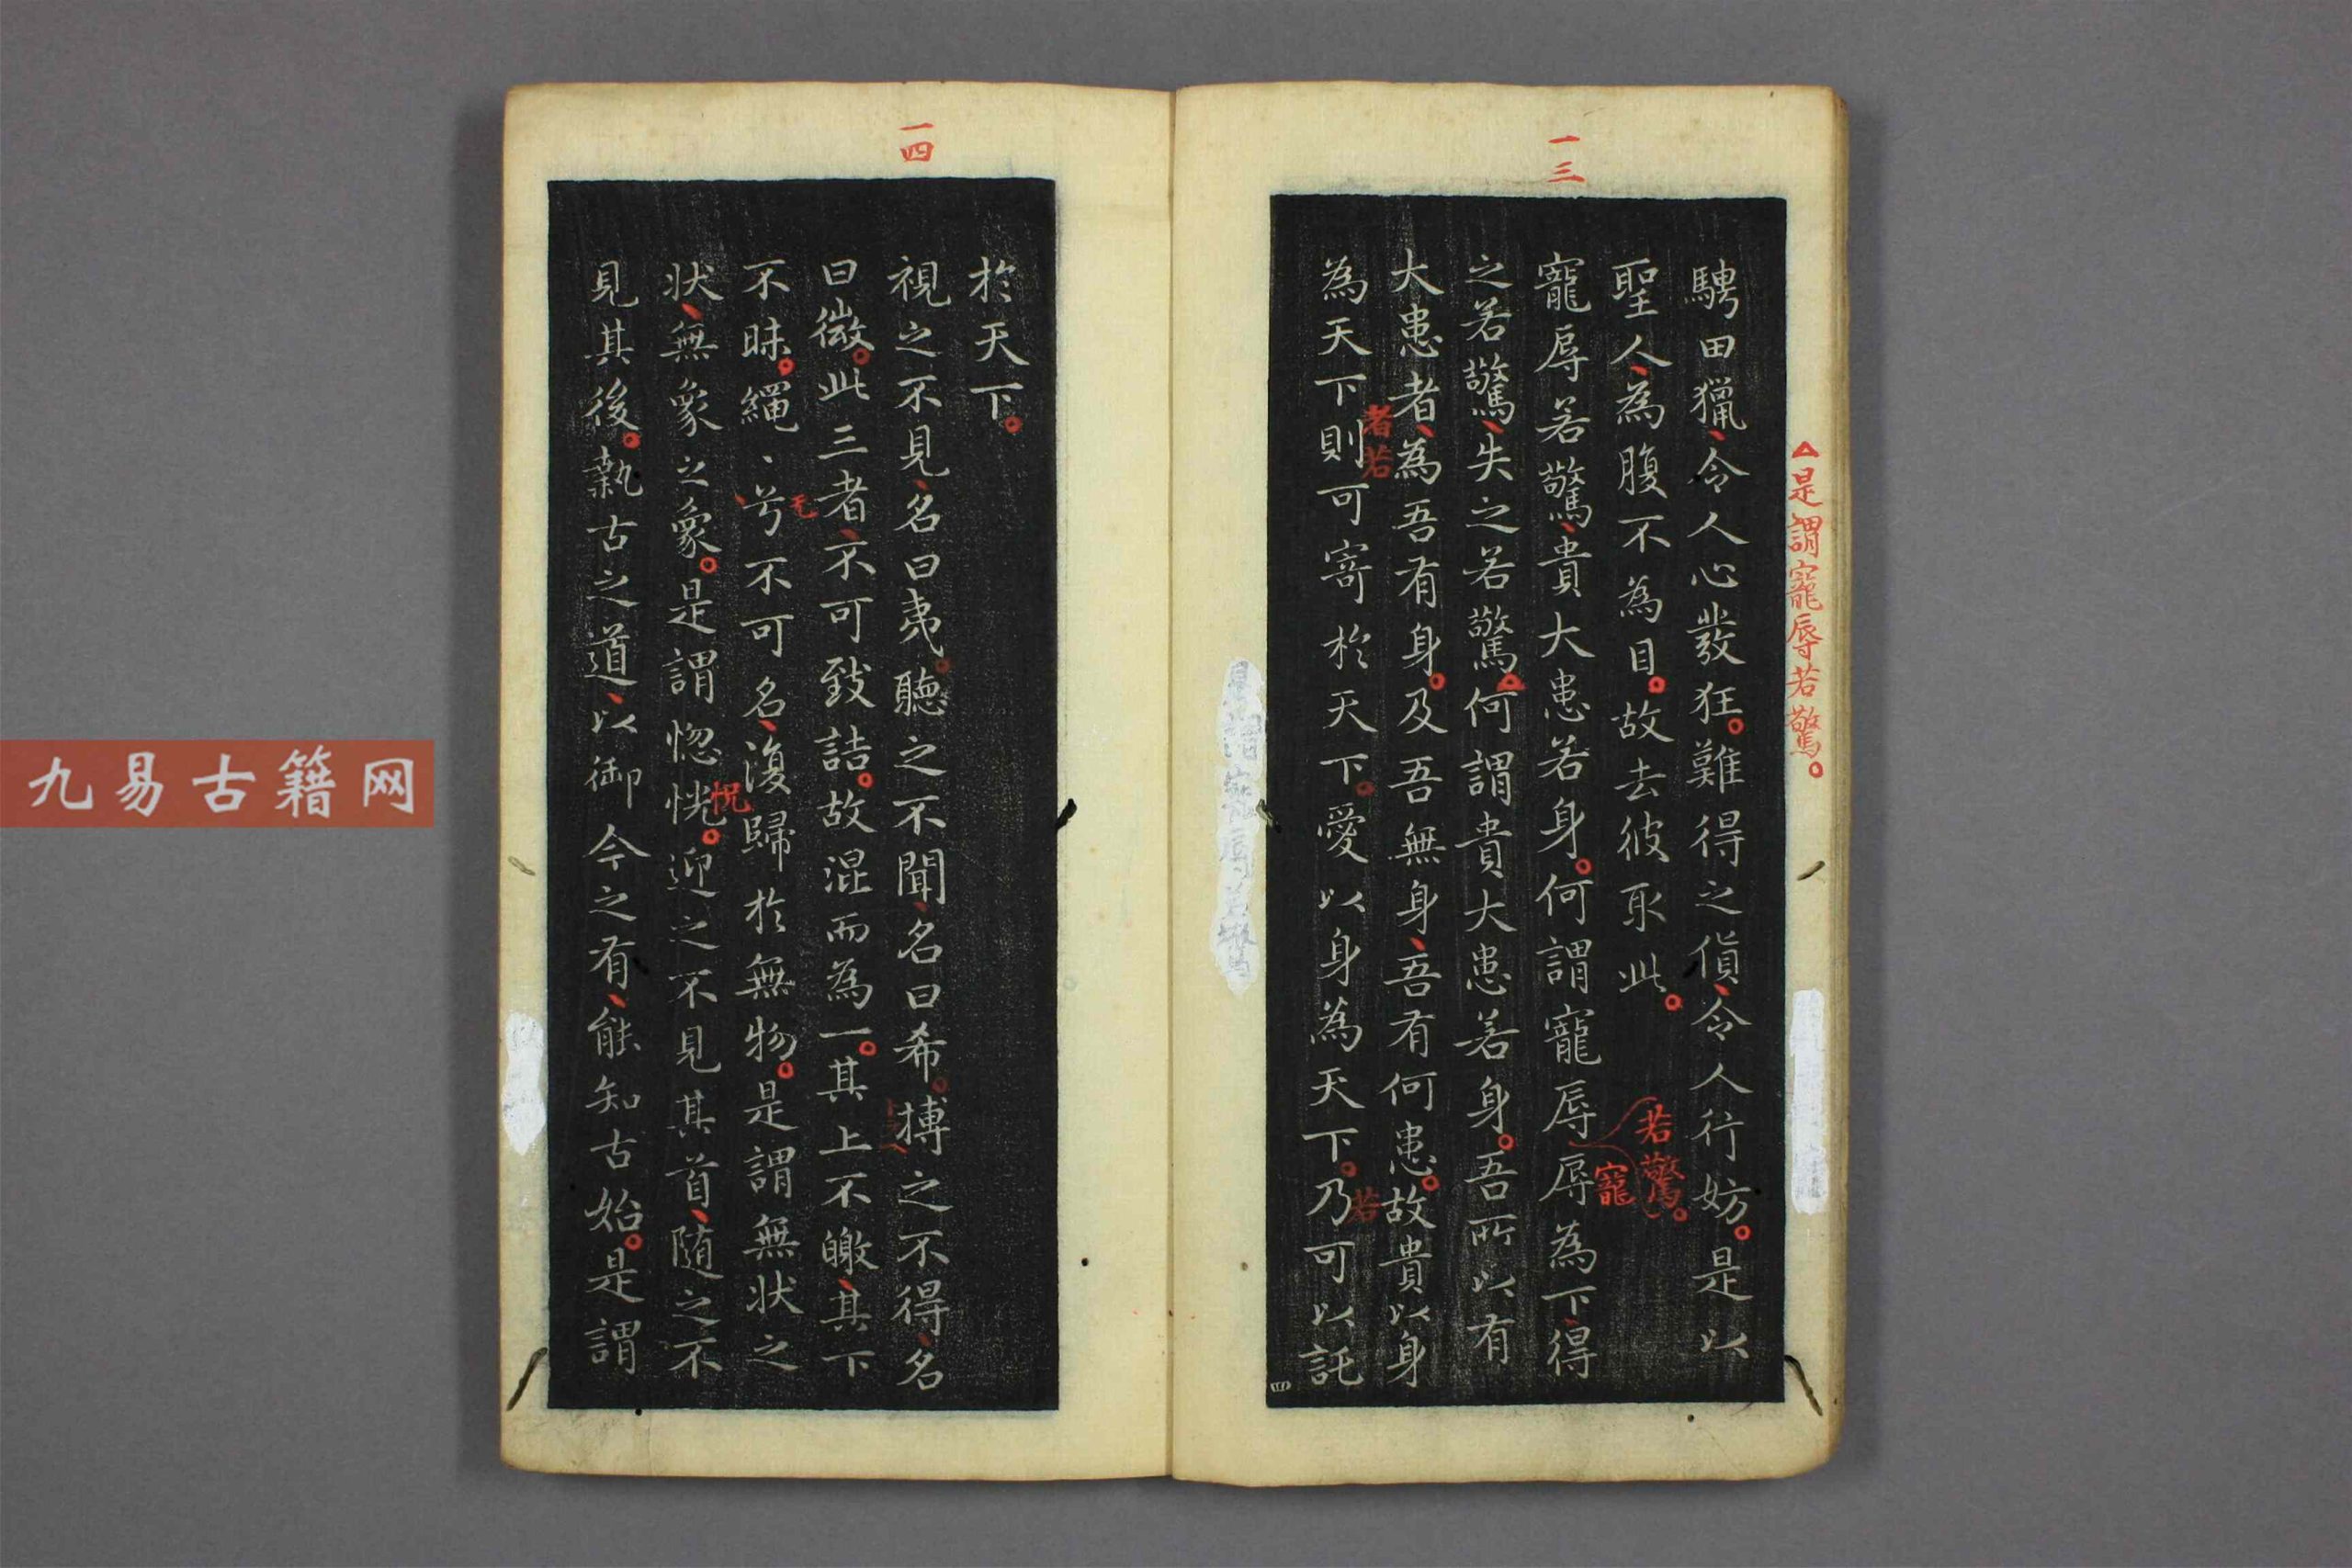 一三
騁田獵令人心發狂難得之貨令人行妨是以
聖人為腹不為目故去彼取此
寵辱若驚貴大患若身何謂寵辱辱為下得
若驚
寵
之若驚失之若驚何謂貴大患若身吾所以有
大患者為吾有身及吾無身吾有何患故貴以身
者若
為天下則可寄於天下愛以身為天下乃可以託
若
△是謂寵辱若驚。
是謂寵辱若驚
一四
於天下
視之不見名曰夷聽之不聞名曰希搏之不得名
曰微此三者不可致詰故混而為一其上不皦其下
不昧繩〻兮不可名復歸於無物是謂無狀之
无
狀無象之象是謂惚恍迎之不見其首隨之不
怳
見其後執古之道以御今之有能知古始是謂
九易古籍网